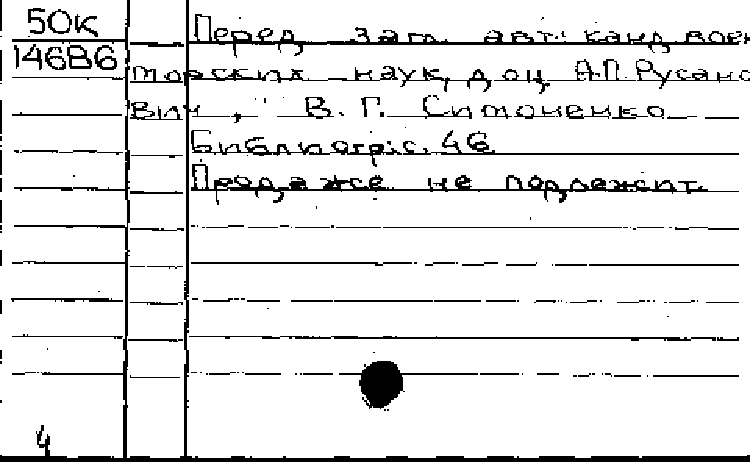 50К
146В6
Перед загл. авт: канд воен
морских наук, доц А.П. Русано
вич, В. Г. Симоненко
Библиогр: с. 46
Продаже не подлежит
4